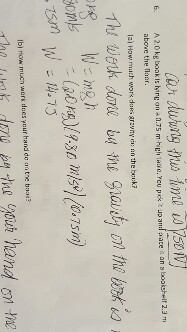 during this time is 750N
6. A 2.0 kg book is lying on a 0.75 m high table. You pick it up and place it on a bookshelf 2.3 m
above the floor.
(a) How much work does gravity do on the book?
The work done by the gravity on the book is
W = mgh
= (2.0kg)(9.80 m/s²)(0.75m)
W = 14.7J
(b) How much work does your hand do on the book?
The work done by the your hand on the